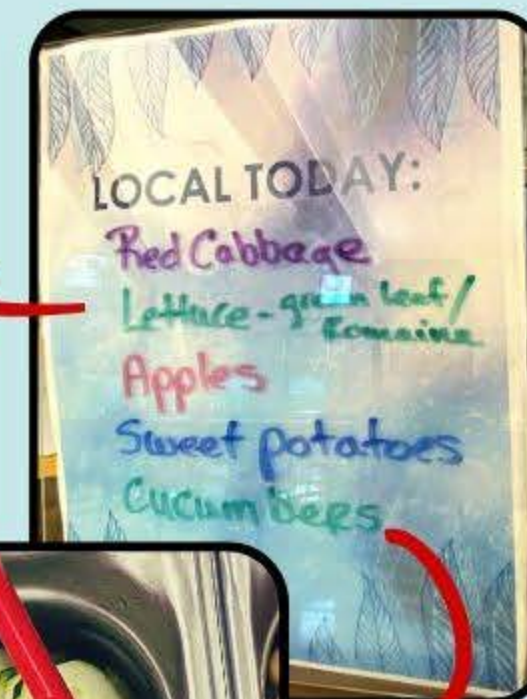 LOCAL TODAY:
Red Cabbage
Lettuce - green leaf/
Romaine
Apples
Sweet potatoes
Cucumbers